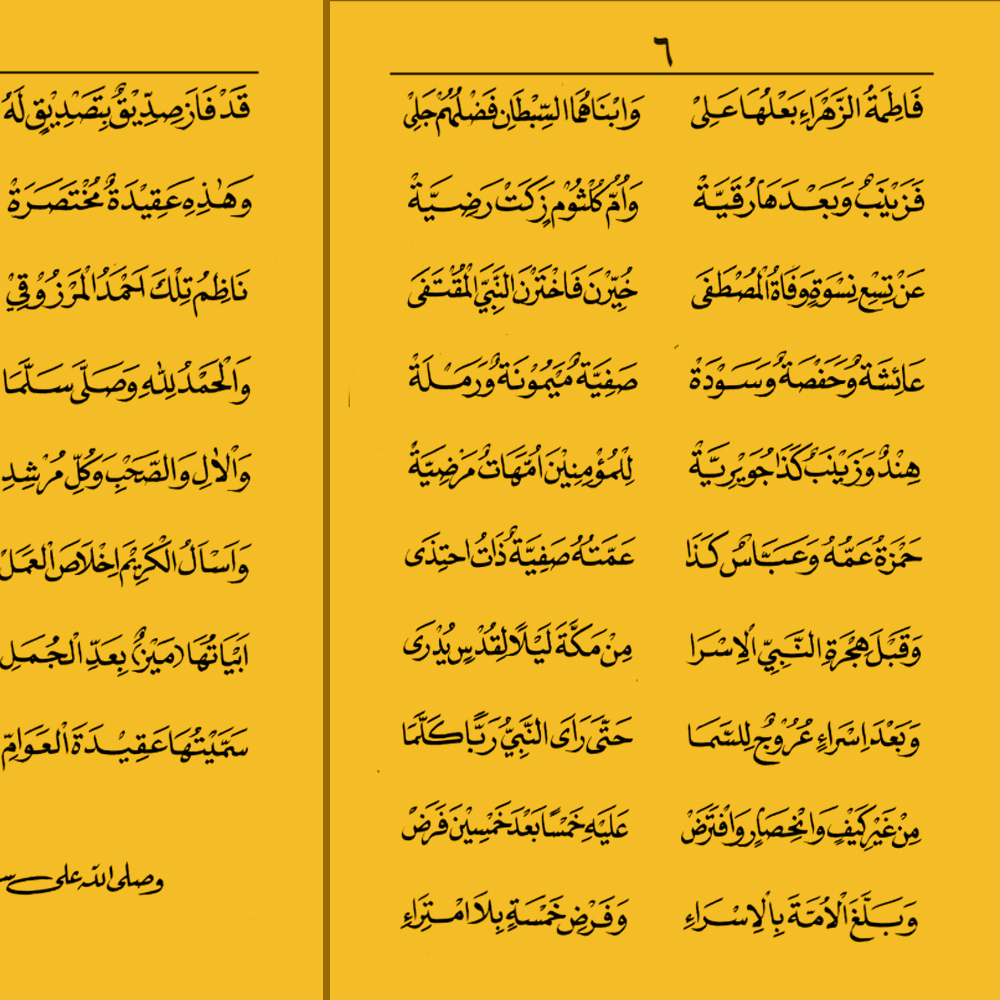 ٦
فَاطِمَةُ الزَّهْرَاءِ بَعْلُهَا عَلِىْ وَابْنَاهُمَا السِّبْطَانِ فَضْلُهُمْ جَلِىْ
فَزَيْنَبٌ وَبَعْدَهَا رُقَيَّةْ وَأُمُّ كُلْثُوْمٍ زَكَتْ رَضِيَّةْ
عَنْ تِسْعِ نِسْوَةٍ وَفَاةُ الْمُصْطَفَى خُيِّرْنَ فَاخْتَرْنَ النَّبِيَّ الْمُقْتَفَى
عَائِشَةٌ وَحَفْصَةٌ وَسَوْدَةْ صَفِيَّةٌ مَيْمُوْنَةٌ وَرَمْلَةْ
هِنْدٌ وَزَيْنَبٌ كَذَا جُوَيْرِيَّةْ لِلْمُؤْمِنِيْنَ اُمَّهَاتٌ مَرْضِيَّةْ
حَمْزَةُ عَمُّهُ وَعَبَّاسٌ كَذَا عَمَّتُهُ صَفِيَّةٌ ذَاتُ احْتِذَى
وَقَبْلَ هِجْرَةِ النَّبِيِّ الْاِسْرَا مِنْ مَكَّةَ لَيْلًا لِقُدْسٍ يُدْرَى
وَبَعْدَ اِسْرَاءٍ عُرُوْجٌ لِلسَّمَا حَتَّى رَاَى النَّبِيُّ رَبًّا كَلَّمَا
مِنْ غَيْرِ كَيْفٍ وَانْحِصَارٍ وَافْتَرَضْ عَلَيْهِ خَمْسًا بَعْدَ خَمْسِيْنَ فَرَضْ
وَبَلَّغَ الْاُمَّةَ بِالْاِسْرَاءِ وَفَرْضِ خَمْسَةٍ بِلَا امْتِرَاءِ
قَدْ فَازَ صِدِّيْقٌ بِتَصْدِيْقٍ لَهُ
وَهٰذِهِ عَقِيْدَةٌ مُخْتَصَرَةْ
نَاظِمُ تِلْكَ اَحْمَدُ الْمَرْزُوْقِيْ
وَالْحَمْدُ لِلّٰهِ وَصَلَّى سَلَّمَا
وَالْاٰلِ وَالصَّحْبِ وَكُلِّ مُرْشِدِ
وَاَسْاَلُ الْكَرِيْمَ اِخْلَاصَ الْعَمَلْ
اَبْيَاتُهَا (مَيْزٌ) بِعَدِّ الْجُمَلِ
سَمَّيْتُهَا عَقِيْدَةَ الْعَوَامِّ
وصلى الله على